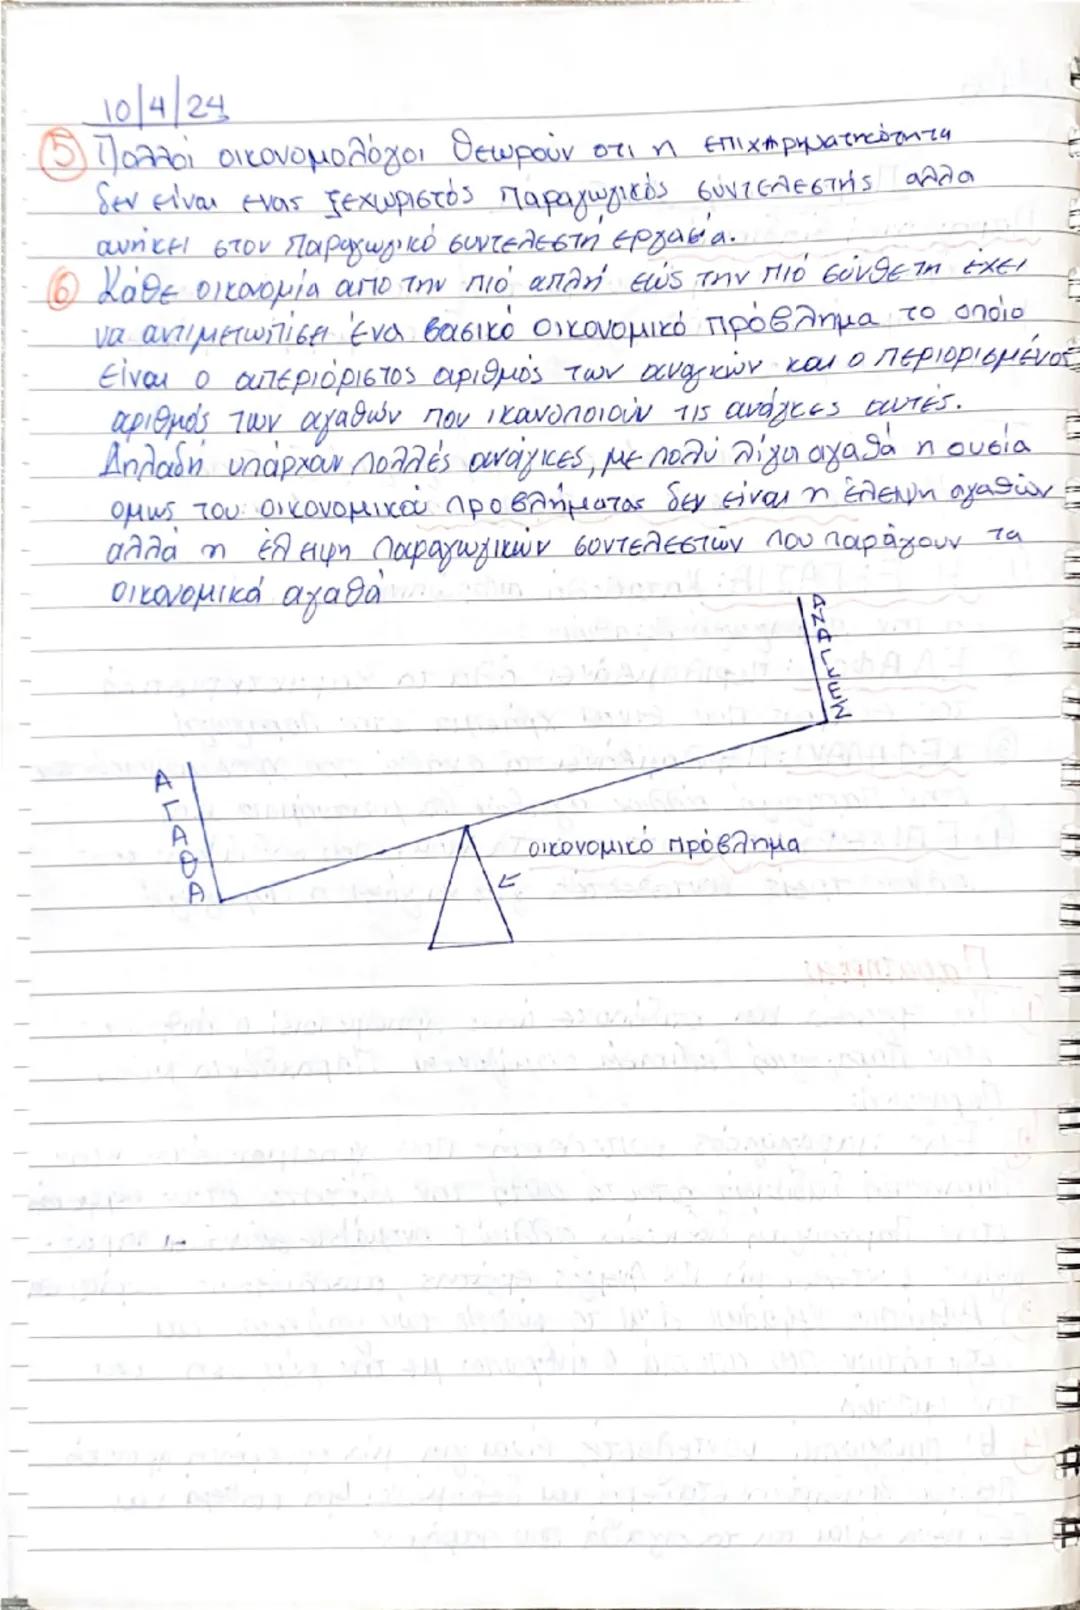 10/4/24
⑤ Πολλοί οικονομολόγοι θεωρούν οτι η επιχειρηματικότητα
δεν είναι ενας ξεχωριστός παραγωγικός συντελεστής αλλα
ανήκει στον παραγωγικό συντελεστή εργασία.
⑥ Κάθε οικονομία απο την πιό απλή εώς την πιό σύνθετη έχει
να αντιμετωπίσει ένα βασικό οικονομικό πρόβλημα το οποίο
είναι ο απεριόριστος αριθμός των αναγκών και ο περιορισμένος
αριθμός των αγαθών που ικανοποιούν τις ανάγκες αυτές.
Δηλαδή υπάρχουν πολλές ανάγκες, με πολύ λίγα αγαθά η ουσία
ομως του οικονομικού προβλήματος δεν είναι η έλειψη αγαθών
αλλά η έλειψη παραγωγικών συντελεστών που παράγουν τα
οικονομικά αγαθά
ΑΓΑΘΑ
οικονομικό πρόβλημα